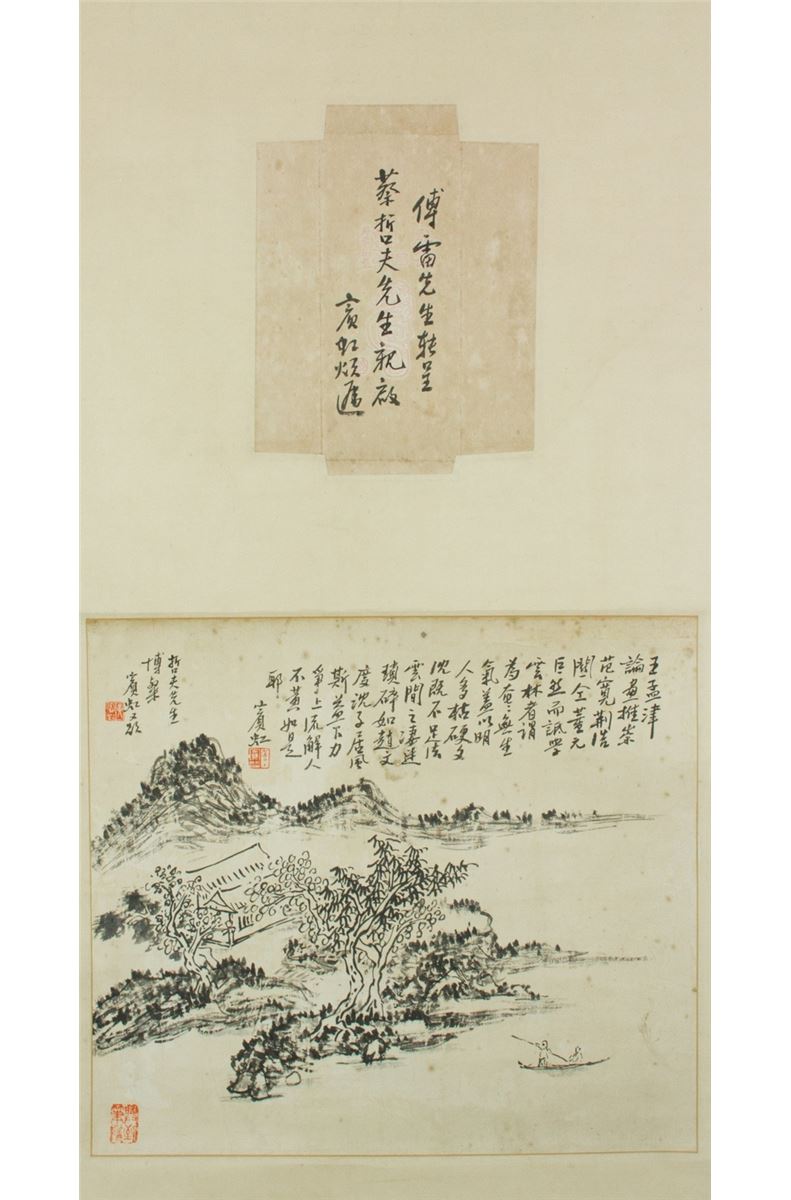 傅雷先生转呈
蔡哲夫先生親啟
賓虹煩遞
王孟津
論畫推崇
范寬荊浩
關仝董元
巨然而詆學
雲林者謂
為奄奄無生
氣蓋以明
人多枯硬文
沈既不足法
雲間之凄迷
瑣碎如趙文
度沈子居風
斯益下力
爭上流解人
不黄如是
耶
賓虹
哲夫先生
博粲
賓虹又題